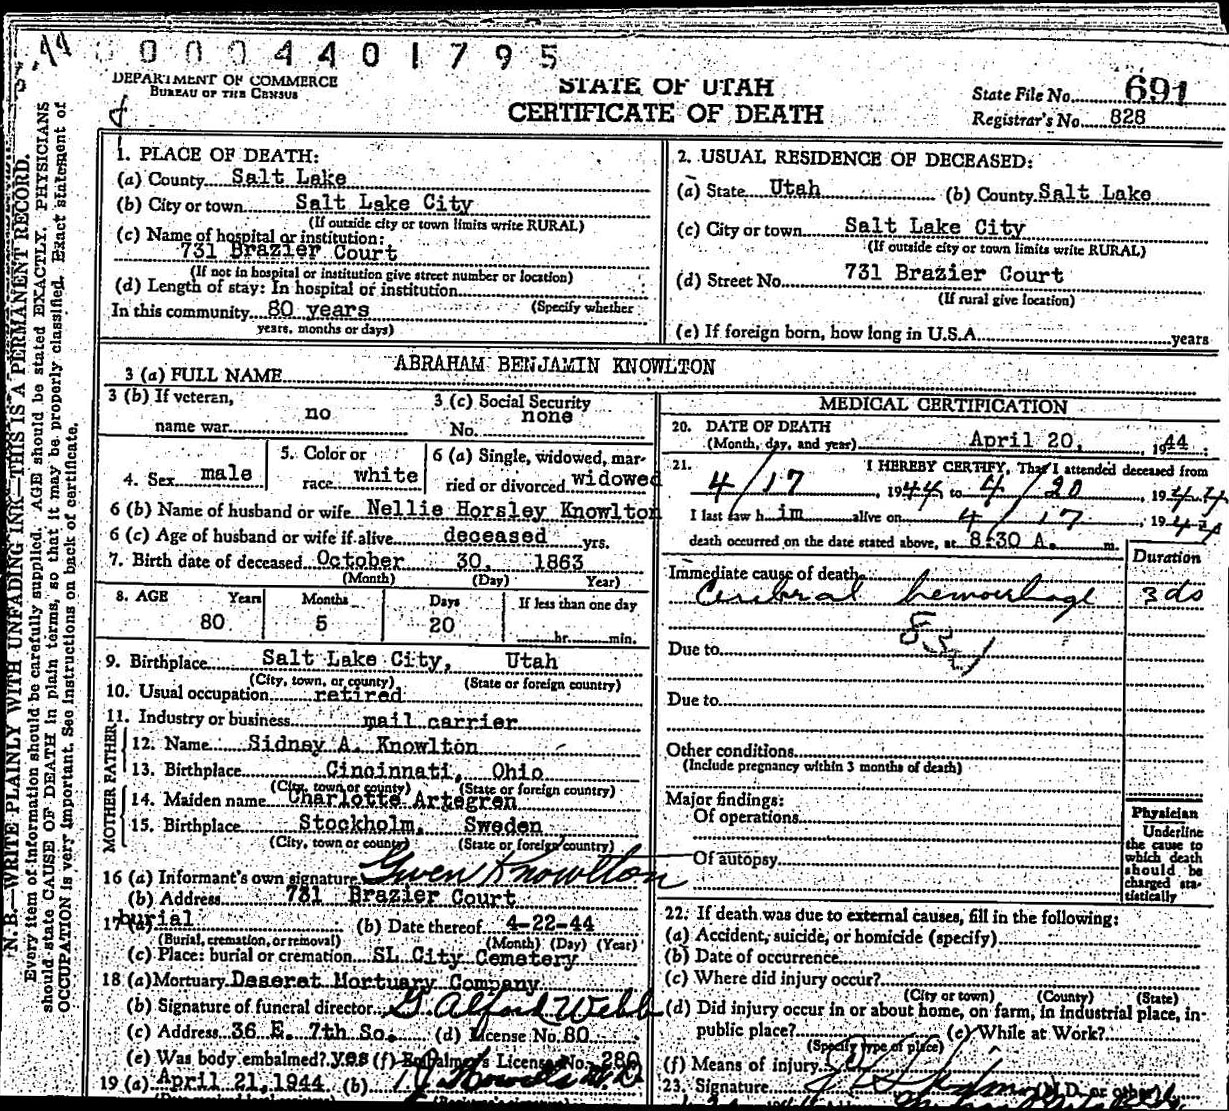 44 0 0 0 4 4 0 1 7 9 5
DEPARTMENT OF COMMERCE
BUREAU OF THE CENSUS
STATE OF UTAH
CERTIFICATE OF DEATH
State File No. 691
Registrar's No. 828
N. B.—WRITE PLAINLY WITH UNFADING INK—THIS IS A PERMANENT RECORD.
Every item of information should be carefully supplied. AGE should be stated EXACTLY. PHYSICIANS
should state CAUSE OF DEATH in plain terms, so that it may be properly classified. Exact statement of
OCCUPATION is very important. See instructions on back of certificate.
1. PLACE OF DEATH:
(a) County Salt Lake
(b) City or town Salt Lake City
(If outside city or town limits write RURAL)
(c) Name of hospital or institution:
731 Brazier Court
(If not in hospital or institution give street number or location)
(d) Length of stay: In hospital or institution
(Specify whether
In this community 80 years
years, months or days)
2. USUAL RESIDENCE OF DECEASED:
(a) State Utah (b) County Salt Lake
(c) City or town Salt Lake City
(If outside city or town limits write RURAL)
(d) Street No. 731 Brazier Court
(If rural give location)
(e) If foreign born, how long in U.S.A. years
3 (a) FULL NAME ABRAHAM BENJAMIN KNOWLTON
3 (b) If veteran, name war no
3 (c) Social Security No. none
4. Sex male
5. Color or race white
6 (a) Single, widowed, married or divorced widowed
6 (b) Name of husband or wife Nellie Horsley Knowlton
6 (c) Age of husband or wife if alive deceased yrs.
7. Birth date of deceased October 30, 1863
(Month) (Day) Year)
8. AGE Years Months Days If less than one day
80 5 20 hr. min.
9. Birthplace Salt Lake City, Utah
(City, town, or county) (State or foreign country)
10. Usual occupation retired
11. Industry or business mail carrier
FATHER
12. Name Sidney A. Knowlton
13. Birthplace Cincinnati, Ohio
(City, town or county) (State or foreign country)
MOTHER
14. Maiden name Charlotte Artegren
15. Birthplace Stockholm, Sweden
(City, town or county) (State or foreign country)
16 (a) Informant's own signature Gwen Knowlton
(b) Address 731 Brazier Court
17 (a) burial (b) Date thereof 4-22-44
(Burial, cremation, or removal) (Month) (Day) (Year)
(c) Place: burial or cremation SL City Cemetery
18 (a) Mortuary Deseret Mortuary Company
(b) Signature of funeral director G. Alford Webb
(c) Address 36 E. 7th So. (d) License No. 80
(e) Was body embalmed? yes (f) Embalmer's License No. 280
19 (a) April 21, 1944 (b)
MEDICAL CERTIFICATION
20. DATE OF DEATH
(Month, day, and year) April 20, 1944
21. I HEREBY CERTIFY, That I attended deceased from
4/17, 1944 to 4/20, 1944
I last saw him alive on 4/17, 1944
death occurred on the date stated above, at 8:30 A. m.
Duration
Immediate cause of death
Cerebral hemorrhage 3 ds
Due to
Due to
Other conditions
(Include pregnancy within 3 months of death)
Major findings:
Of operations
Of autopsy
Physician
Underline
the cause to
which death
should be
charged sta-
tistically
22. If death was due to external causes, fill in the following:
(a) Accident, suicide, or homicide (specify)
(b) Date of occurrence
(c) Where did injury occur?
(City or town) (County) (State)
(d) Did injury occur in or about home, on farm, in industrial place, in
public place? (e) While at Work?
(Specify type of place)
(f) Means of injury
23. Signature (M.D. or other)